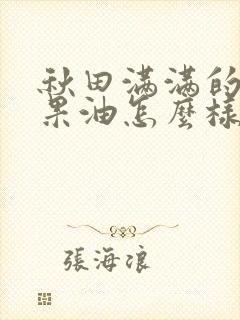 秋田满满的
果油怎麼樣
張海浪